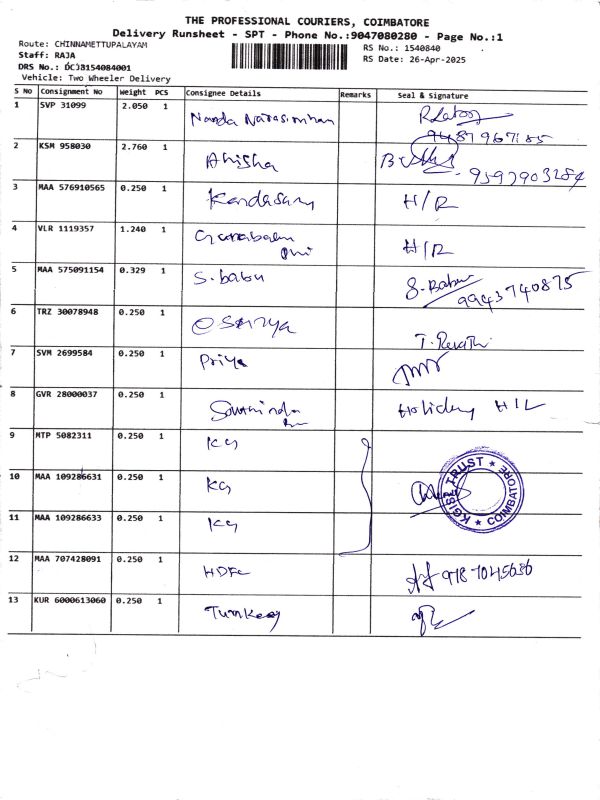 THE PROFESSIONAL COURIERS, COIMBATORE
Delivery Runsheet - SPT - Phone No.:9047080280 - Page No.:1
Route: CHINNAMETTUPALAYAM
Staff: RAJA
DRS No.: DCJ8154084001
Vehicle: Two Wheeler Delivery
RS No.: 1540840
RS Date: 26-Apr-2025
S No Consignment No Weight PCS Consignee Details Remarks Seal & Signature
1 SVP 31099 2.050 1 Nanda Narasimhan
9487967185
2 KSM 958030 2.760 1 Ahisha 9597903284
3 MAA 576910565 0.250 1 Kandasamy H/R
4 VLR 1119357 1.240 1 Gunabalan H/R
5 MAA 575091154 0.329 1 S. babu S. Babu
9943740875
6 TRZ 30078948 0.250 1 T. Revathi
7 SVM 2699584 0.250 1 Priya
8 GVR 28000037 0.250 1 Holiday H/L
9 MTP 5082311 0.250 1 KG
10 MAA 109286631 0.250 1 KG KGISL TRUST ★ COIMBATORE ★
11 MAA 109286633 0.250 1 KG
12 MAA 707428091 0.250 1 HDFC 9187045636
13 KUR 6000613060 0.250 1 Turnkey